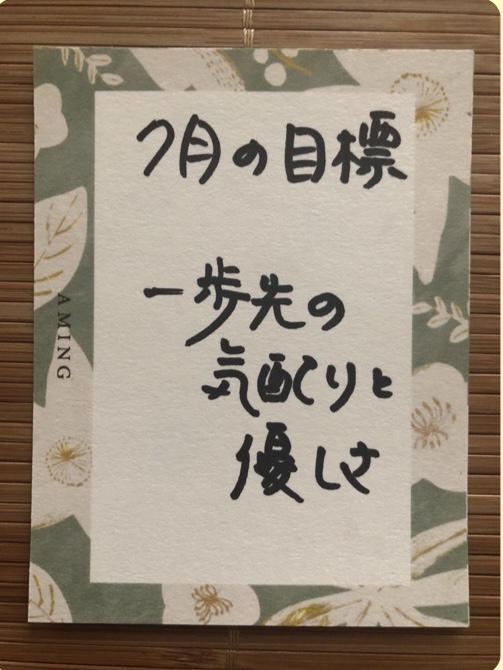 7月の目標
一歩先の
気配りと
優しさ
AMING